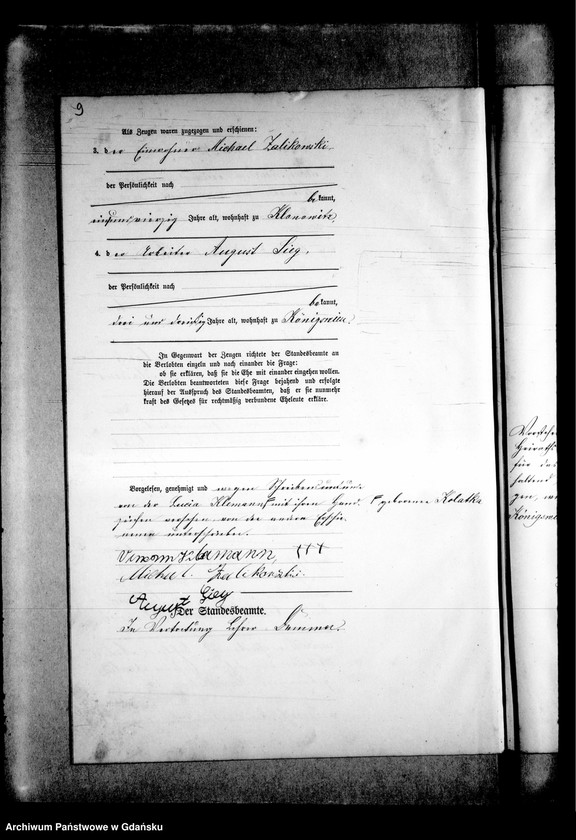 9
Als Zeugen waren zugezogen und erschienen:
3. der Einwohner Michael Zalikowski
der Persönlichkeit nach
bekannt,
einundvierzig Jahre alt, wohnhaft zu Klonowitz,
4. der Arbeiter August Sieg,
der Persönlichkeit nach
bekannt,
drei und dreißig Jahre alt, wohnhaft zu Königswiese
In Gegenwart der Zeugen richtete der Standesbeamte an
die Verlobten einzeln und nach einander die Frage:
ob sie erklären, daß sie die Ehe mit einander eingehen wollen.
Die Verlobten beantworteten diese Frage bejahend und erfolgte
hierauf der Ausspruch des Standesbeamten, daß er sie nunmehr
kraft des Gesetzes für rechtmäßig verbundene Eheleute erkläre.
Vorgelesen, genehmigt und wegen Schreibensunkunde
von der Lucia Klemann mit ihren Hand- geborene Kolatka
zeichen versehen von den andern
unterschrieben.
Klemann, +++
Michael Zalikowski
August Sieg
Der Standesbeamte.
In Vertretung Lehrer
Vorstehen
Heirats
für das
Königswie
Archiwum Państwowe w Gdańsku